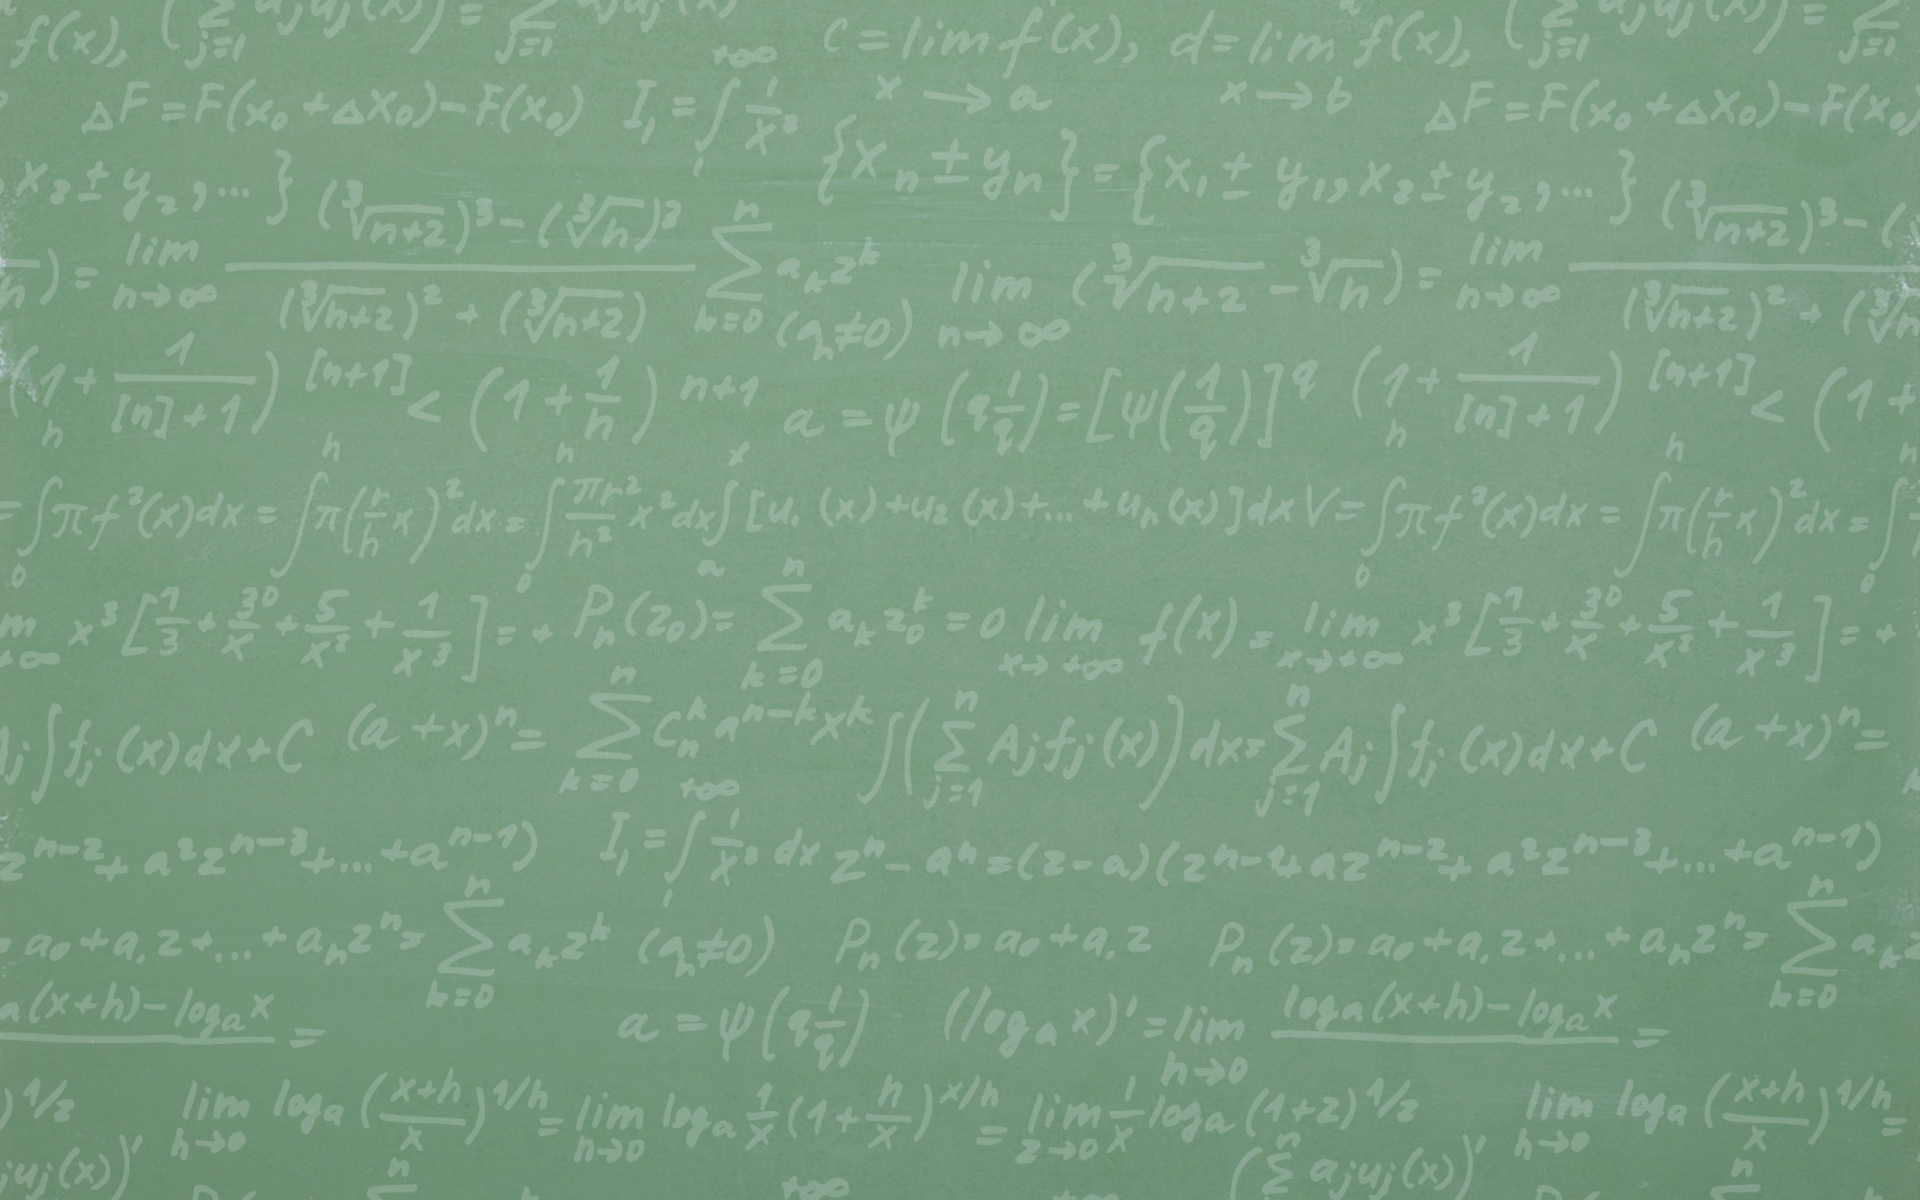 f(x), (∑ j=1 ajuj(x)) = ∑ j=1 ajuj(x) +∞ c = lim x→a f(x), d = lim x→b f(x), (∑ j=1 ajuj(x)) = ∑ j=1
ΔF = F(x₀ + Δx₀) − F(x₀) I₁ = ∫₁ 1/x² ΔF = F(x₀ + Δx₀) − F(x₀)
x₂ ± y₂, ... } {xₙ ± yₙ} = {x₁ ± y₁, x₂ ± y₂, ... }
) = lim n→∞ ((∛n+2)³ − (∛n)³) / ((∛n+2)² + (∛n+2)) ∑ⁿ k=0 aₖzᵏ (aₙ≠0) lim n→∞ (∛n+2 − ∛n) = lim n→∞ (∛n+2)³ − ( / (∛n+2)² + (∛n
(1 + 1/([n]+1))^[n+1] < (1 + 1/n)^n+1 a = ψ(q 1/q) = [ψ(1/q)]^q (1 + 1/([n]+1))^[n+1] < (1 +
= ∫₀ʰ πf²(x)dx = ∫ʰ π(r/h x)²dx = ∫₀ʰ πr²/h² x²dx ∫ₐˣ [u₁(x) + u₂(x) + ... + uₙ(x)]dx V = ∫₀ʰ πf²(x)dx = ∫ʰ π(r/h x)²dx = ∫₀ʰ
m +∞ x³[1/3 + 30/x + 5/x² + 1/x³] = + Pₙ(z₀) = ∑ⁿ k=0 aₖz₀ᵏ = 0 lim x→+∞ f(x) = lim x→+∞ x³[1/3 + 30/x + 5/x² + 1/x³] = +
Aj∫fj(x)dx + C (a + x)ⁿ = ∑ⁿ k=0 Cₙᵏ aⁿ⁻ᵏxᵏ ∫(∑ⁿ j=1 Ajfj(x))dx = ∑ⁿ j=1 Aj∫fj(x)dx + C (a + x)ⁿ =
zⁿ⁻² + a²zⁿ⁻³ + ... + aⁿ⁻¹) I₁ = ∫₁^+∞ 1/x² dx zⁿ − aⁿ = (z − a)(zⁿ⁻¹ + azⁿ⁻² + a²zⁿ⁻³ + ... + aⁿ⁻¹)
a₀ + a₁z + ... + aₙzⁿ = ∑ⁿ k=0 aₖzᵏ (aₙ≠0) Pₙ(z) = a₀ + a₁z Pₙ(z) = a₀ + a₁z + ... + aₙzⁿ = ∑ⁿ k=0 aₖz
a(x+h) − logₐx = a = ψ(q 1/q) (logₐx)' = lim h→0 logₐ(x+h) − logₐx =
)^1/z lim h→0 logₐ((x+h)/x)^1/h = lim h→0 logₐ 1/x (1 + h/x)^x/h = lim z→0 1/x logₐ(1+z)^1/z lim h→0 logₐ((x+h)/x)^1/h =
juj(x))' n ∑ +∞ (∑ⁿ ajuj(x))' n